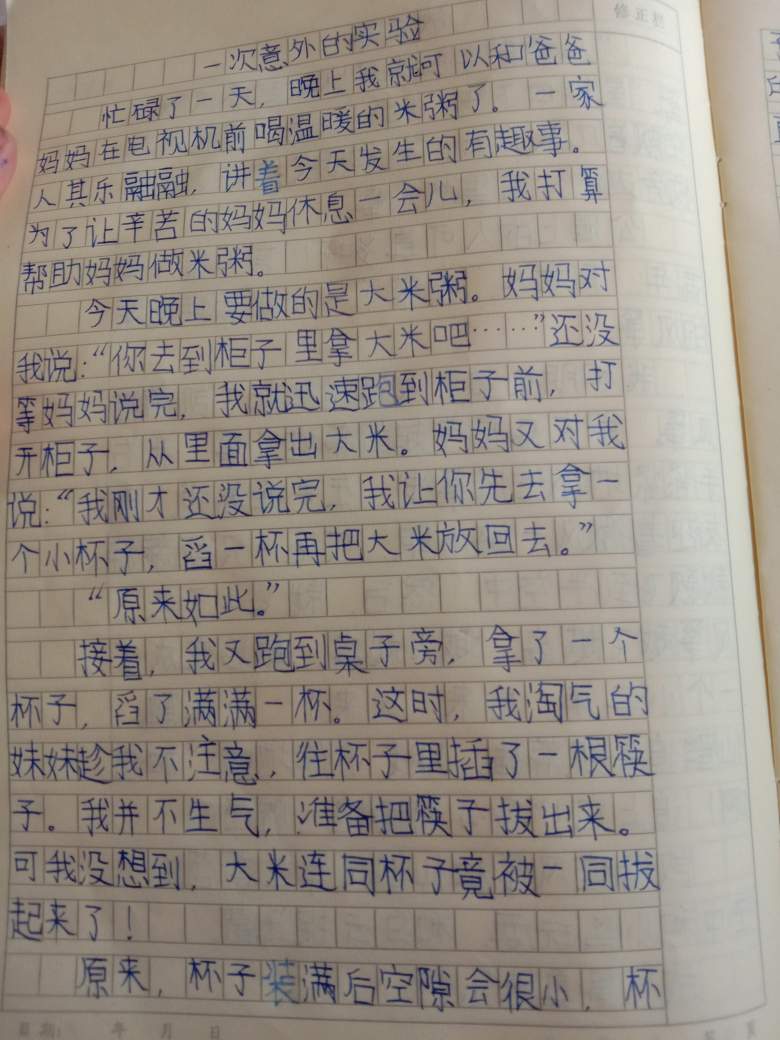 修正栏
一次意外的实验
忙碌了一天，晚上我就可以和爸爸
妈妈在电视机前喝温暖的米粥了。一家
人其乐融融，讲着今天发生的有趣事。
为了让辛苦的妈妈休息一会儿，我打算
帮助妈妈做米粥。
今天晚上要做的是大米粥。妈妈对
我说：“你去到柜子里拿大米吧……”还没
等妈妈说完，我就迅速跑到柜子前，打
开柜子，从里面拿出大米。妈妈又对我
说：“我刚才还没说完，我让你先去拿一
个小杯子，舀一杯再把大米放回去。”
“原来如此。”
接着，我又跑到桌子旁，拿了一个
杯子，舀了满满一杯。这时，我淘气的
妹妹趁我不注意，往杯子里插了一根筷
子。我并不生气，准备把筷子拔出来。
可我没想到，大米连同杯子竟被一同拔
起来了！
原来，杯子装满后空隙会很小，杯
日期： 年 月 日